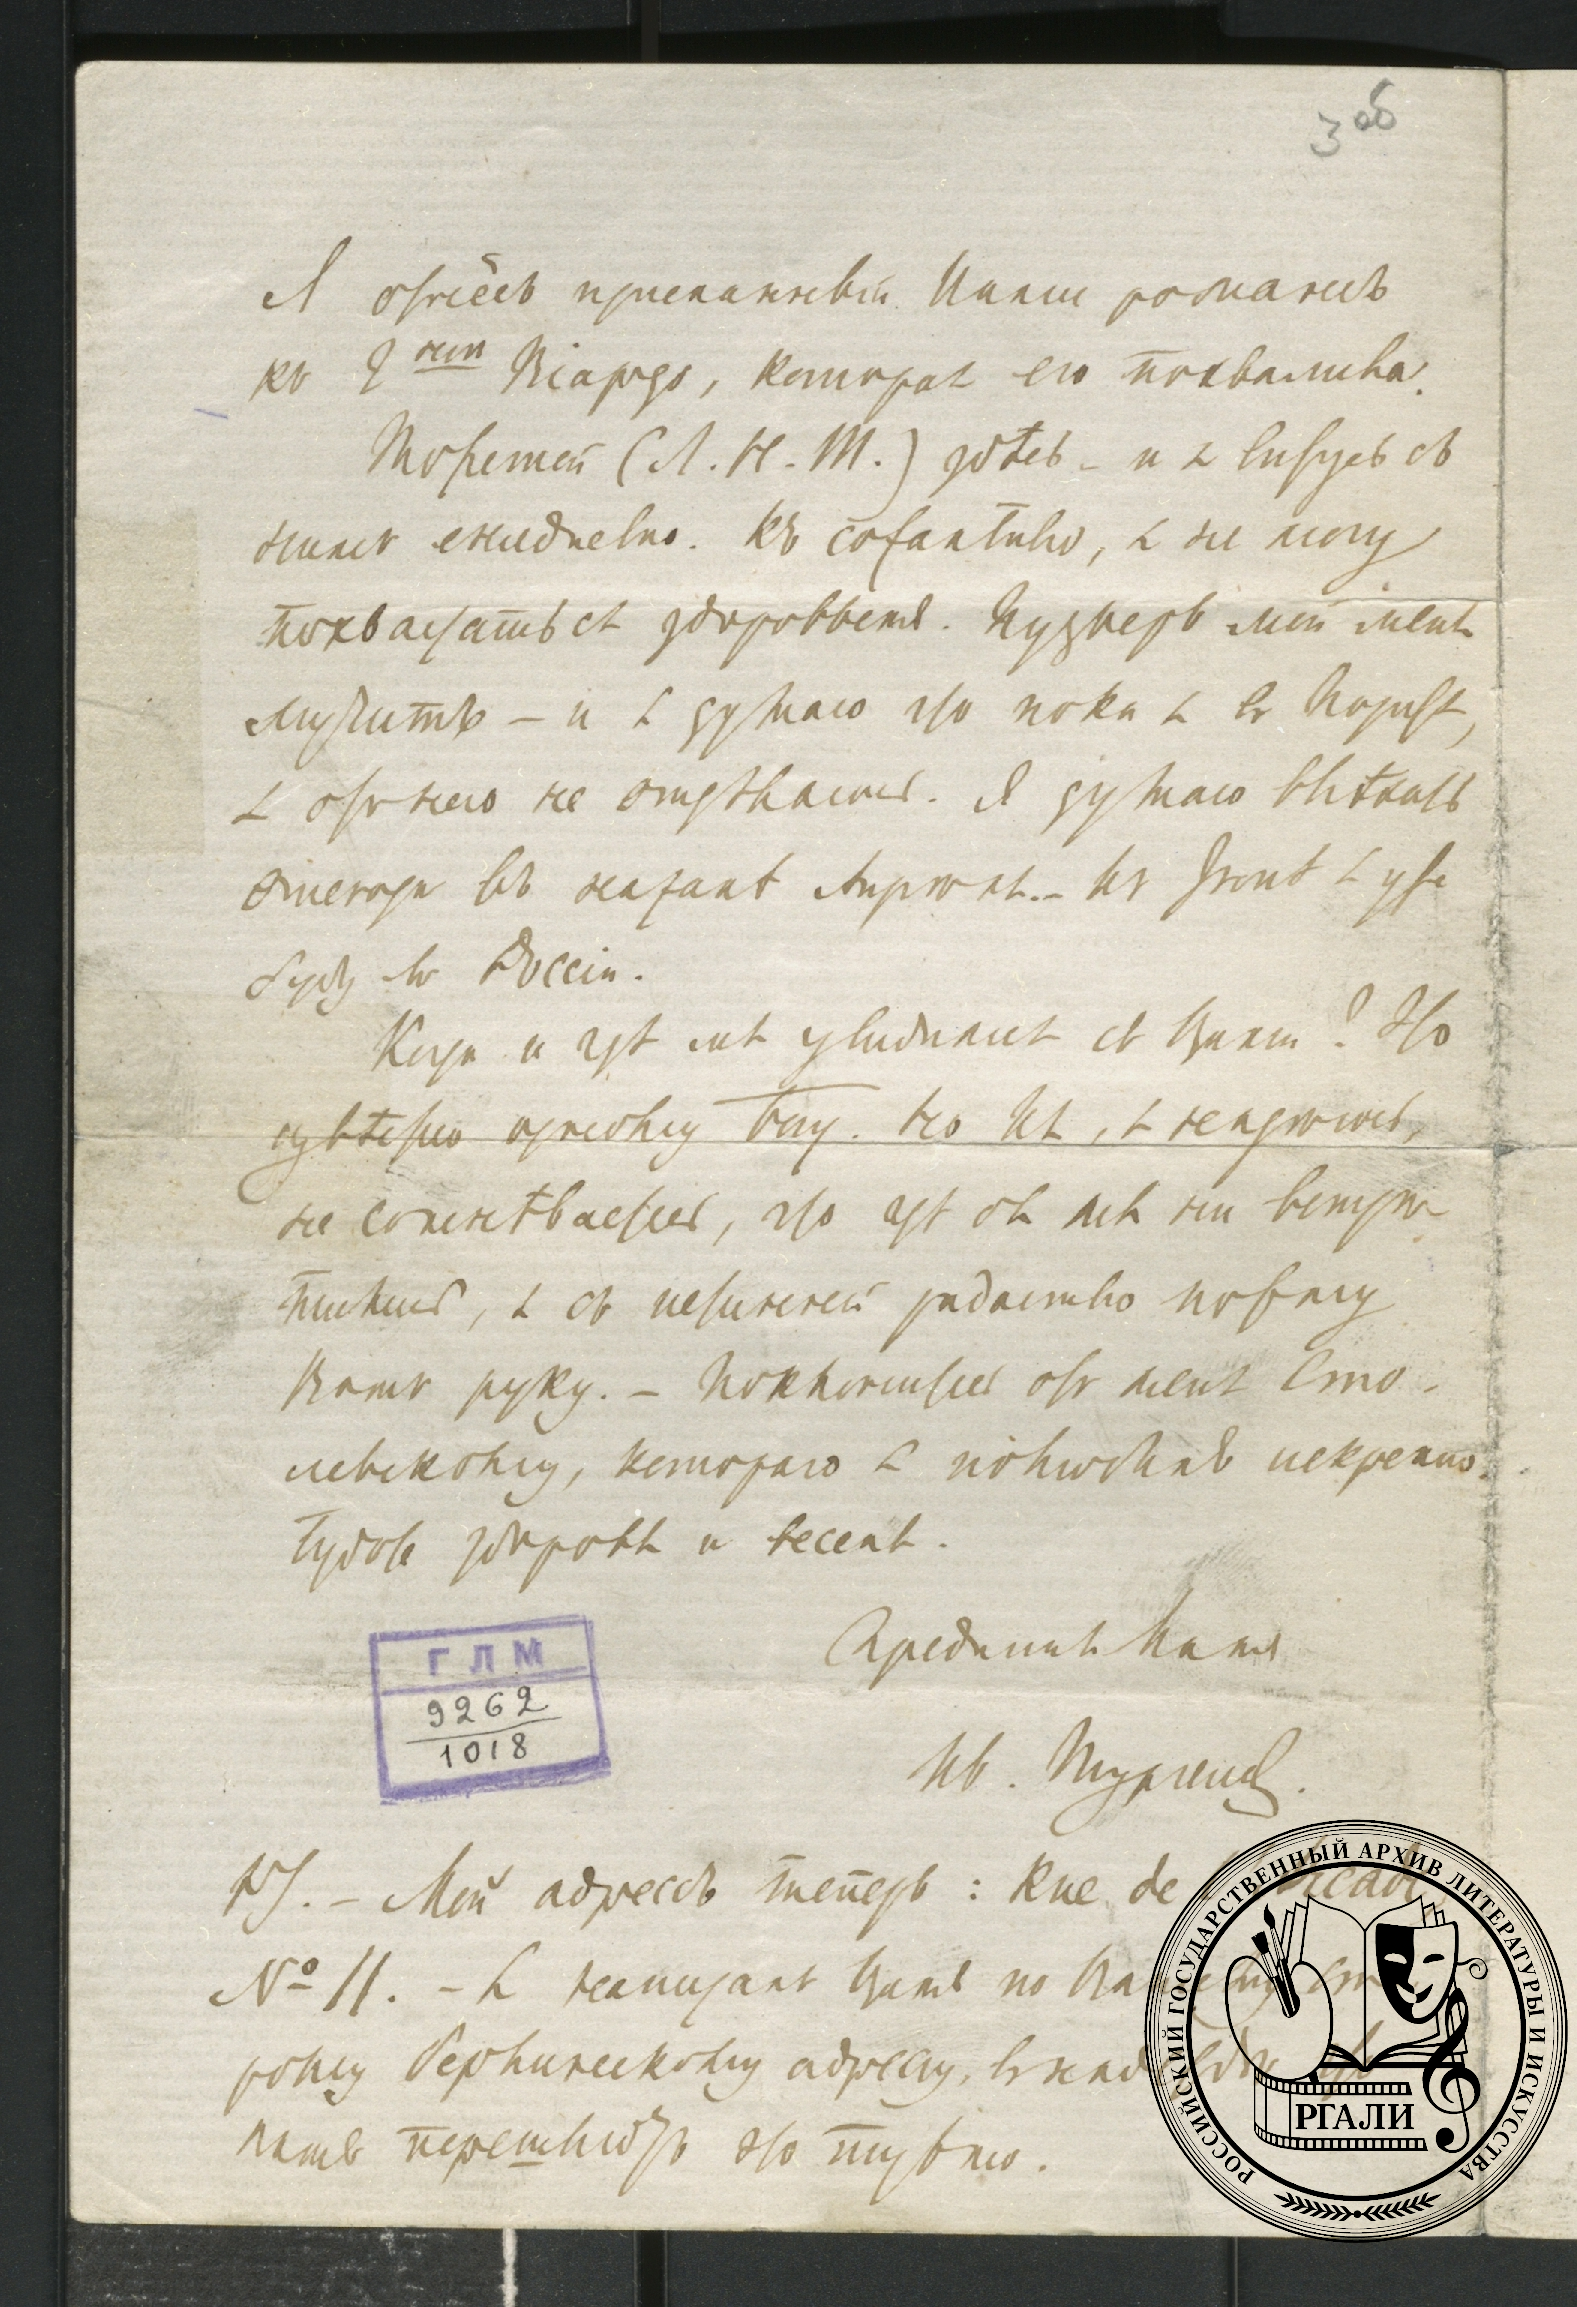 3 об
Я отнёсъ присланный Вами романсъ
къ Г-жѣ Віардо, которая его похвалила.
Толстой (Л. Н. Т.) здѣсь – и я вижусь съ
нимъ ежедневно. Къ сожалѣнію, я не могу
похвастаться здоровьемъ. Пузырь мой меня
мучитъ – и я думаю что пока я въ Парижѣ,
я отъ него не отдѣлаюсь. Я думаю выѣхать
отсюда въ началѣ Апрѣля. – Въ Іюнѣ я уже
буду въ Россіи.
Когда и гдѣ мы увидимся съ Вами? Это
извѣстно одному Богу. Но Вы, я надѣюсь,
не сомнѣваетесь, что гдѣ бы мы ни встрѣ-
тились, я съ истинной радостью пожму
Вамъ руку. – Поклонитесь отъ меня
которого я полюбилъ искренно.
Будьте здоровы и веселы.
Преданный Вамъ
Ив. Тургенев.
PS. – Мой адрессъ теперь: Rue de
№ 11. – Я написалъ Вамъ по
рому Берлинскому адрессу, въ
Вамъ перешлютъ это письмо.
ГЛМ
9262
1018
РОССИЙСКИЙ ГОСУДАРСТВЕННЫЙ АРХИВ ЛИТЕРАТУРЫ И ИСКУССТВА
РГАЛИ